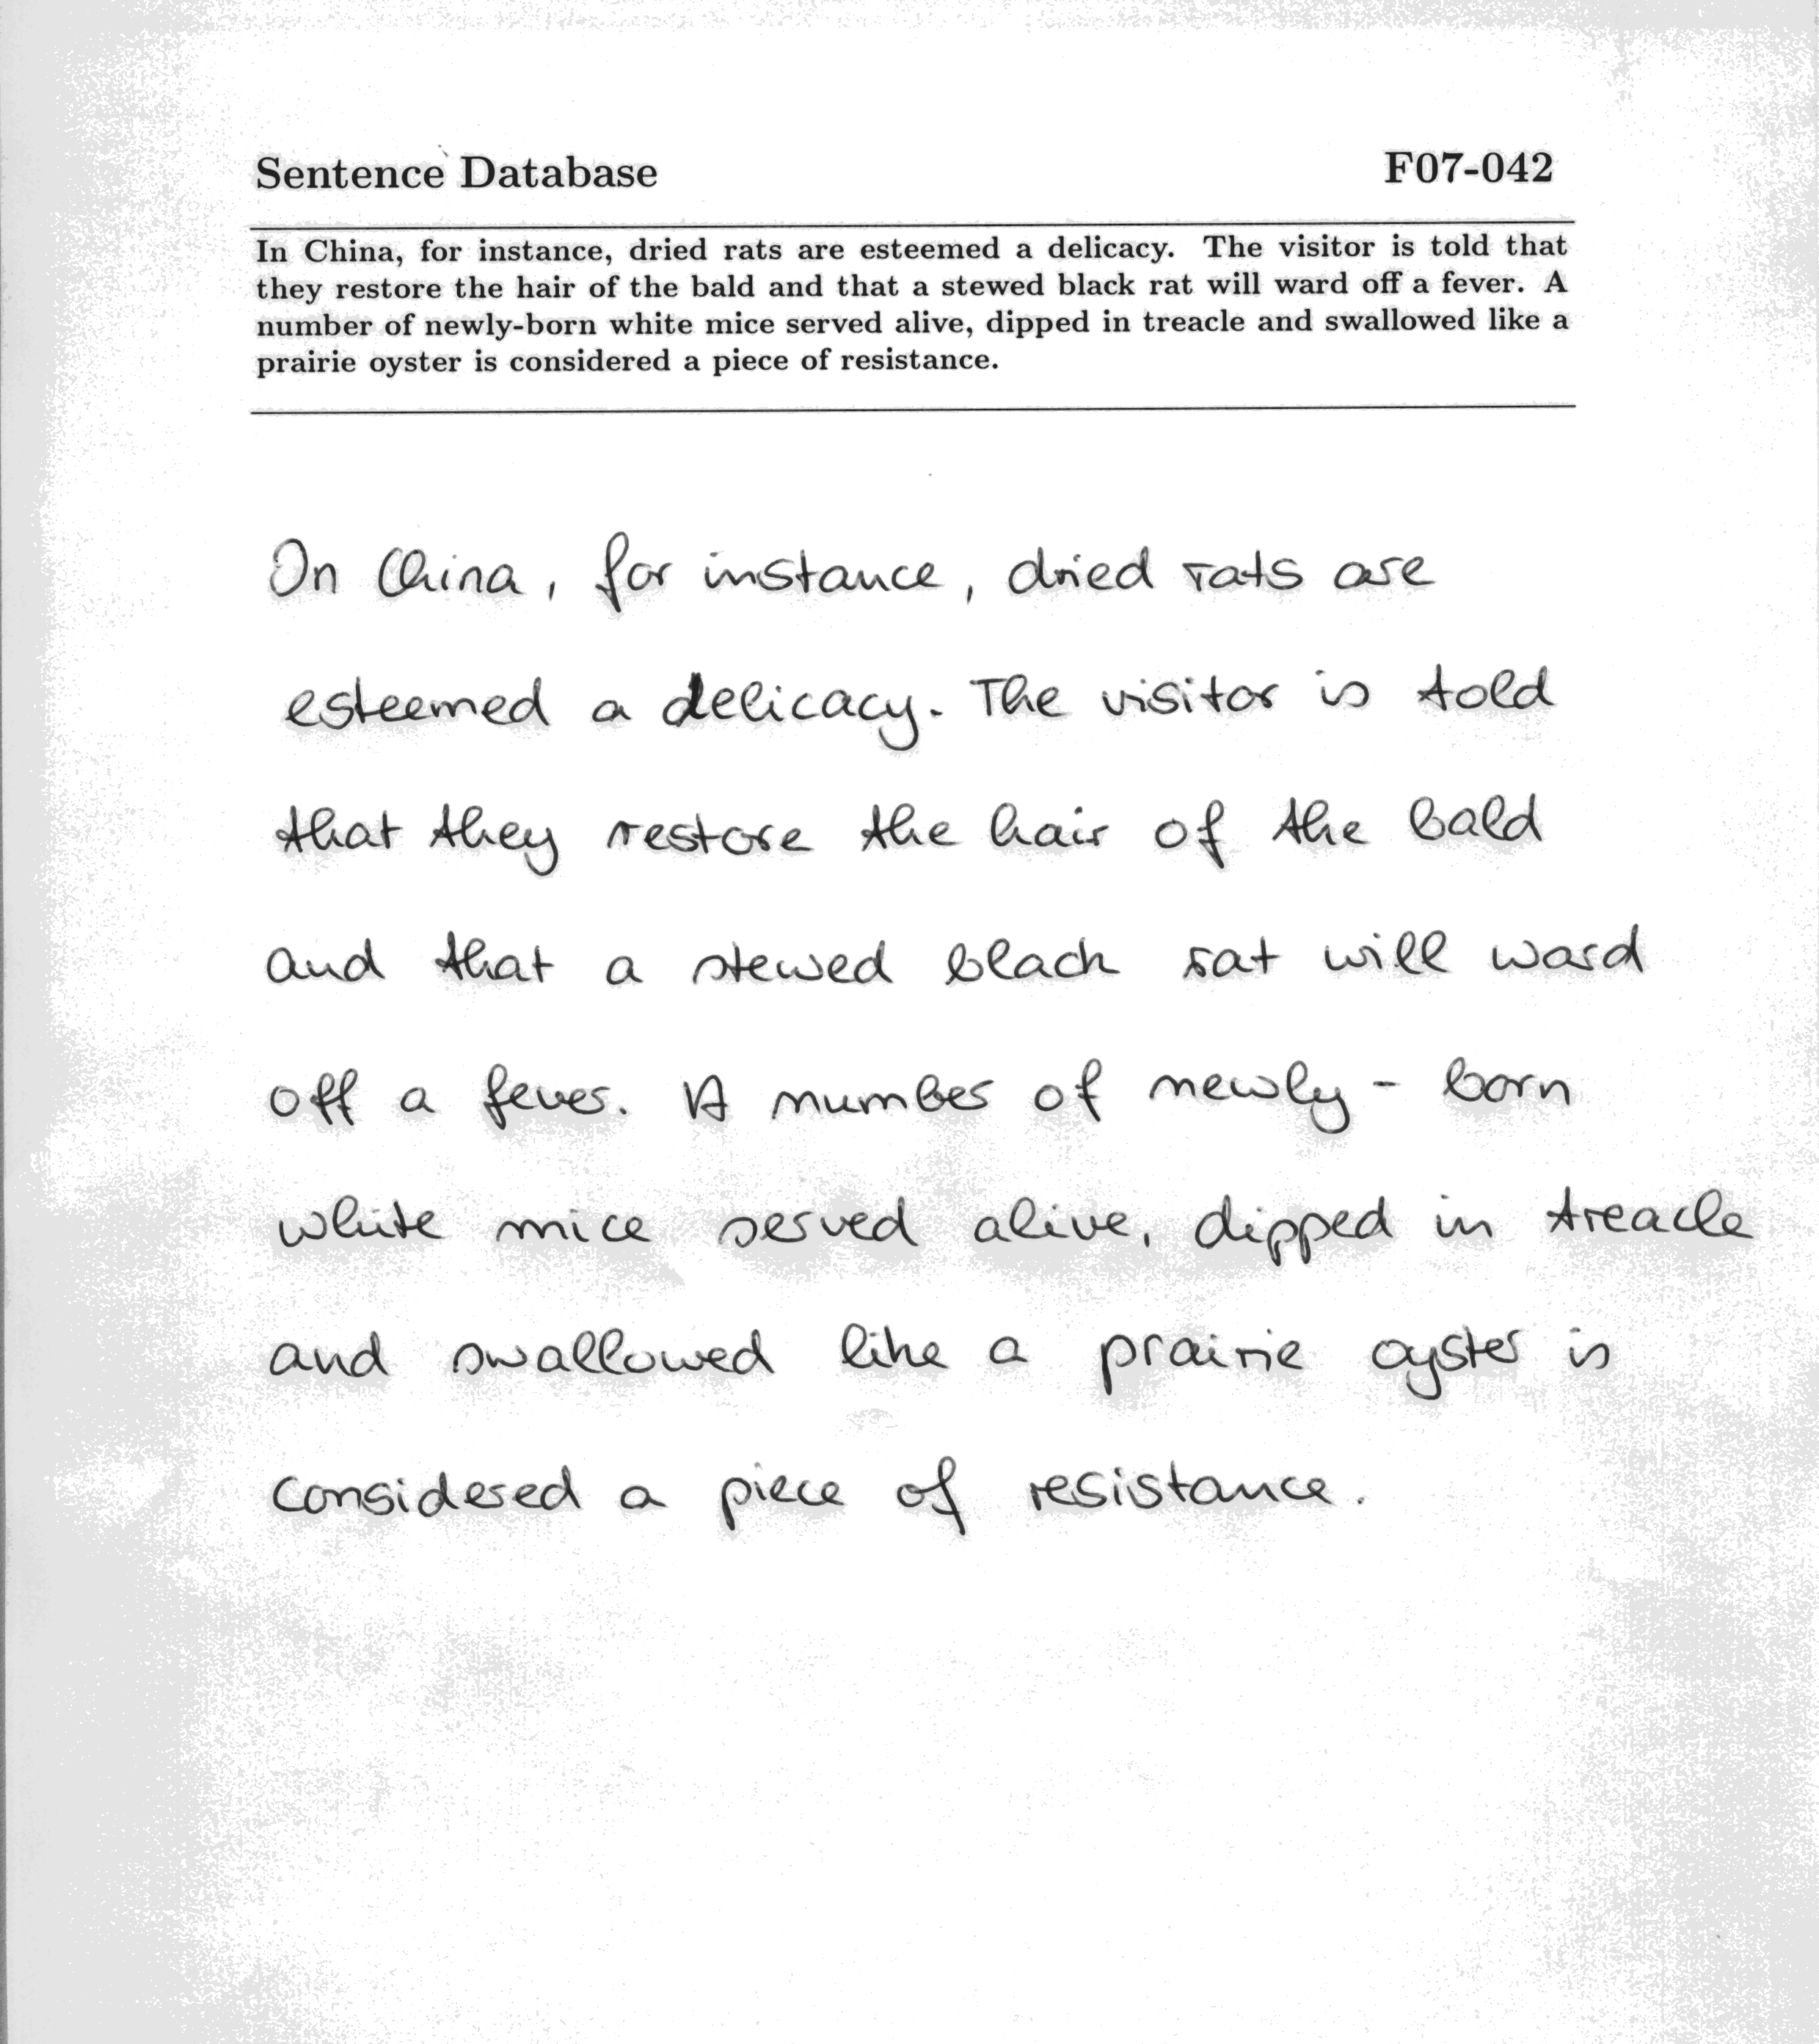 Sentence Database F07-042
In China, for instance, dried rats are esteemed a delicacy. The visitor is told that
they restore the hair of the bald and that a stewed black rat will ward off a fever. A
number of newly-born white mice served alive, dipped in treacle and swallowed like a
prairie oyster is considered a piece of resistance.
In China, for instance, dried rats are
esteemed a delicacy. The visitor is told
that they restore the hair of the bald
and that a stewed black rat will ward
off a fever. A number of newly - born
white mice served alive, dipped in treacle
and swallowed like a prairie oyster is
considered a piece of resistance.